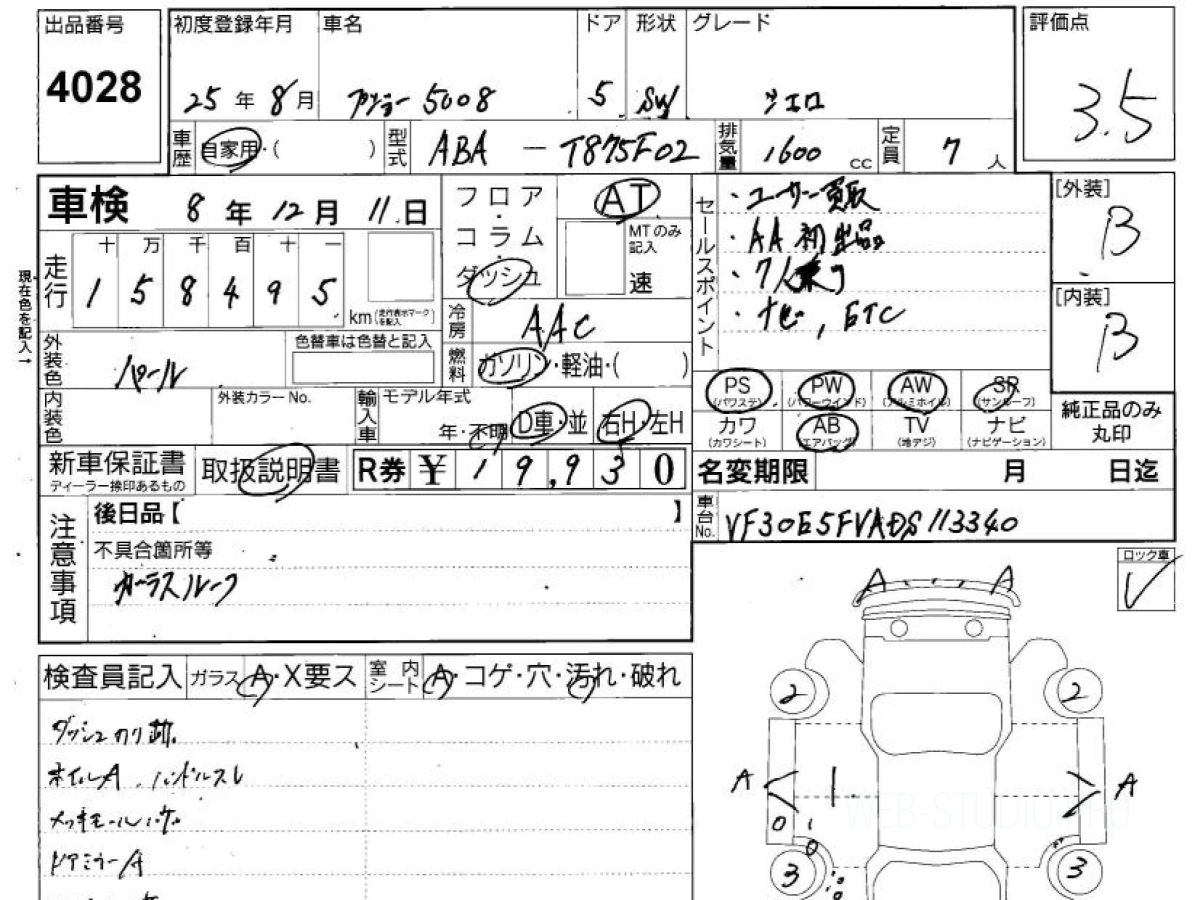 出品番号
4028
初度登録年月
25年8月
車名
プジョー 5008
ドア
5
形状
SW
グレード
シエロ
評価点
3.5
車歴
自家用・( )
型式
ABA - T875F02
排気量
1600 cc
定員
7人
車検 8年12月11日
走行
十万千百十一
158495 km (走行表示マークを記入)
現在色を記入→
フロア・コラム・ダッシュ
AT
MTのみ記入
速
冷房
AAC
燃料
ガソリン・軽油・( )
セールスポイント
・ユーザー買取
・AA初出品
・7人乗り
・ナビ, ETC
[外装]
B
[内装]
B
外装色
パール
色替車は色替と記入
内装色
外装カラーNo.
輸入車
モデル年式
年・不明
D車・並
右H・左H
PS (パワステ)
PW (パワーウインド)
AW (アルミホイル)
SR (サンルーフ)
カワ (カワシート)
AB (エアバッグ)
TV (地デジ)
ナビ (ナビゲーション)
純正品のみ丸印
新車保証書
ディーラー捺印あるもの
取扱説明書
R券 ¥ 19,930
名変期限 月 日迄
車台No.
VF30E5FVADS113340
注意事項
後日品【 】
不具合箇所等
ガラスルーフ
ロック車
検査員記入
ガラス A・X要ス
室内シート A・コゲ・穴・汚れ・破れ
ダッシュのり跡
ホイルA. ハンドルスレ
メッキモールハゲ
ドアミラーA
A A
2 2
A A
3 3
WEB-STUDIO.PRO